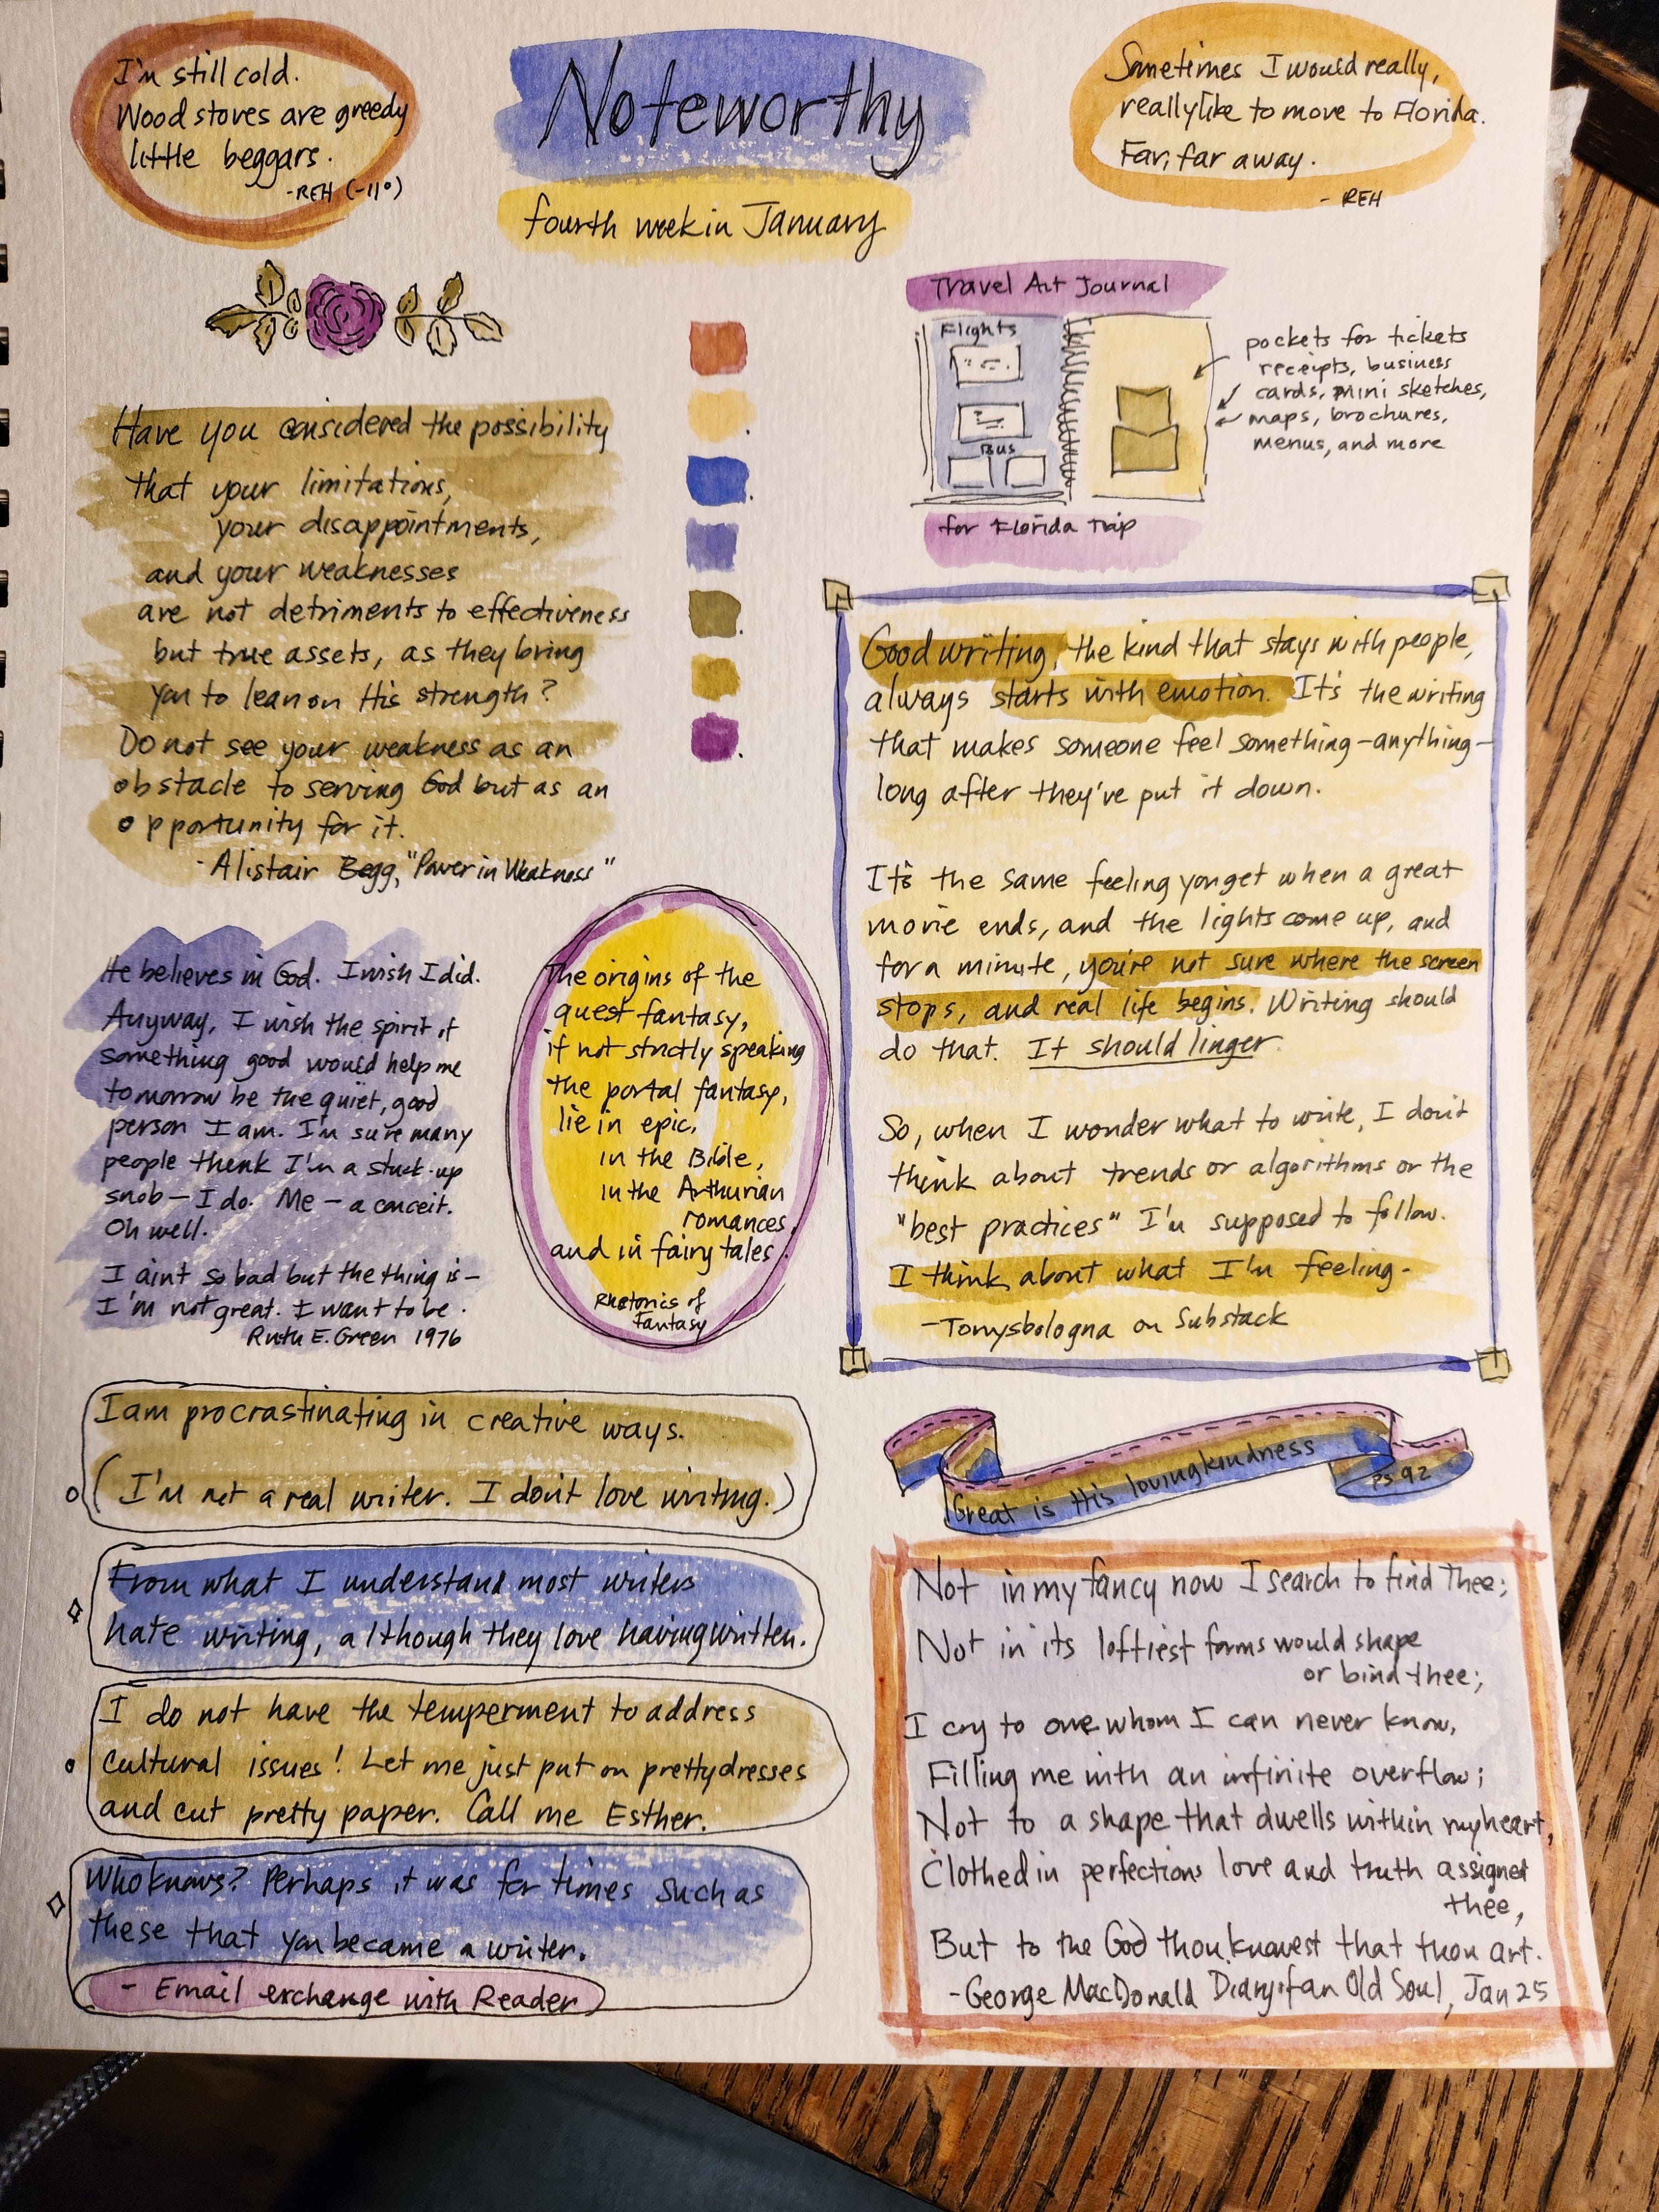 I'm still cold.
Wood stoves are greedy
little beggars.
-REH (-11°)
Noteworthy
fourth week in January
Sometimes I would really,
really like to move to Florida.
Far, far away.
- REH
Travel Art Journal
Flights
Bus
pockets for tickets
receipts, business
cards, mini sketches,
maps, brochures,
menus, and more
for Florida Trip
Have you considered the possibility
that your limitations,
your disappointments,
and your weaknesses
are not detriments to effectiveness
but true assets, as they bring
you to lean on His strength?
Do not see your weakness as an
obstacle to serving God but as an
opportunity for it.
- Alistair Begg, "Power in Weakness"
He believes in God. I wish I did.
Anyway, I wish the spirit of
something good would help me
tomorrow be the quiet, good
person I am. I'm sure many
people think I'm a stuck-up
snob — I do. Me — a conceit.
Oh well.
I aint so bad but the thing is —
I'm not great. I want to be.
Ruth E. Green 1976
The origins of the
quest fantasy,
if not strictly speaking
the portal fantasy,
lie in epic,
in the Bible,
in the Arthurian
romances,
and in fairy tales.
Rhetorics of
Fantasy
Good writing, the kind that stays with people,
always starts with emotion. It's the writing
that makes someone feel something—anything—
long after they've put it down.
It's the same feeling you get when a great
movie ends, and the lights come up, and
for a minute, you're not sure where the screen
stops, and real life begins. Writing should
do that. It should linger.
So, when I wonder what to write, I don't
think about trends or algorithms or the
"best practices" I'm supposed to follow.
I think about what I'm feeling-
-Tonysbologna on Substack
I am procrastinating in creative ways.
(I'm not a real writer. I don't love writing.)
From what I understand most writers
hate writing, although they love having written.
I do not have the temperment to address
cultural issues! Let me just put on pretty dresses
and cut pretty paper. Call me Esther.
Who knows? Perhaps it was for times such as
these that you became a writer.
- Email exchange with Reader
Great is His lovingkindness
Ps 92
Not in my fancy now I search to find thee;
Not in its loftiest forms would shape
or bind thee;
I cry to one whom I can never know,
Filling me with an infinite overflow;
Not to a shape that dwells within my heart,
Clothed in perfections love and truth assigned
thee,
But to the God thou knowest that thou art.
-George MacDonald Diary of an Old Soul, Jan 25